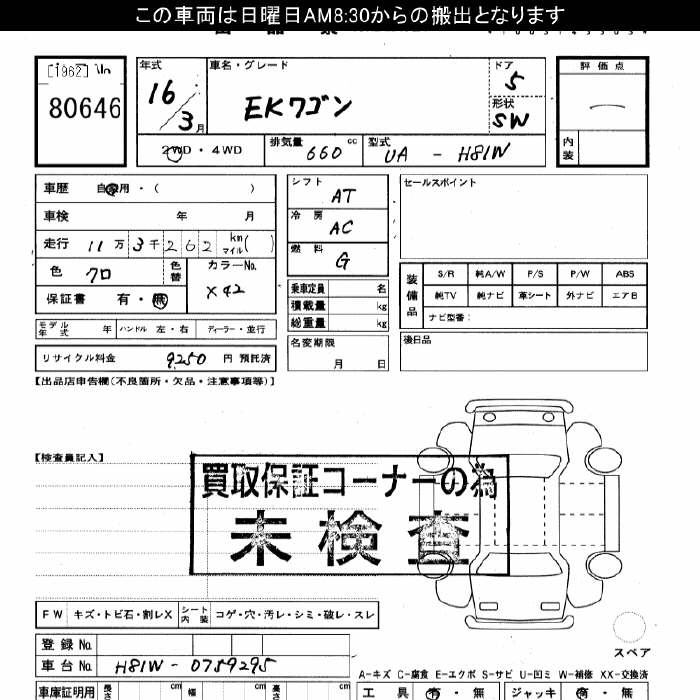 この車両は日曜日AM8:30からの搬出となります
[1962]
80646
年式
16
3月
車名・グレード
EKワゴン
ドア
5
形状
SW
評価点
内装
2WD・4WD
排気量
660 cc
型式
UA - H81W
車歴 自家用・( )
車検 年 月
走行 11万3千262 km マイル( )
色 クロ
色替
カラーNo.
X42
保証書 有・無
モデル年式 年 ハンドル 左・右 ディーラー・並行
リサイクル料金 9250 円 預託済
シフト
AT
冷房
AC
燃料
G
乗車定員 名
積載量 kg
総重量 kg
名変期限
月 日
セールスポイント
装備品
S/R 純A/W P/S P/W ABS
純TV 純ナビ 革シート 外ナビ エアB
ナビ型番:
後日品
【出品店申告欄(不良箇所・欠品・注意事項等)】
【検査員記入】
買取保証コーナーの為
未検査
FW キズ・トビ石・割レX シート内装 コゲ・穴・汚レ・シミ・破レ・スレ
スペア
登録No.
車台No. H81W - 0759295
A-キズ C-腐食 E-エクボ S-サビ U-凹ミ W-補修 XX-交換済
車庫証明用 長さ cm 幅 cm 高さ cm
工具 有・無 ジャッキ 有・無